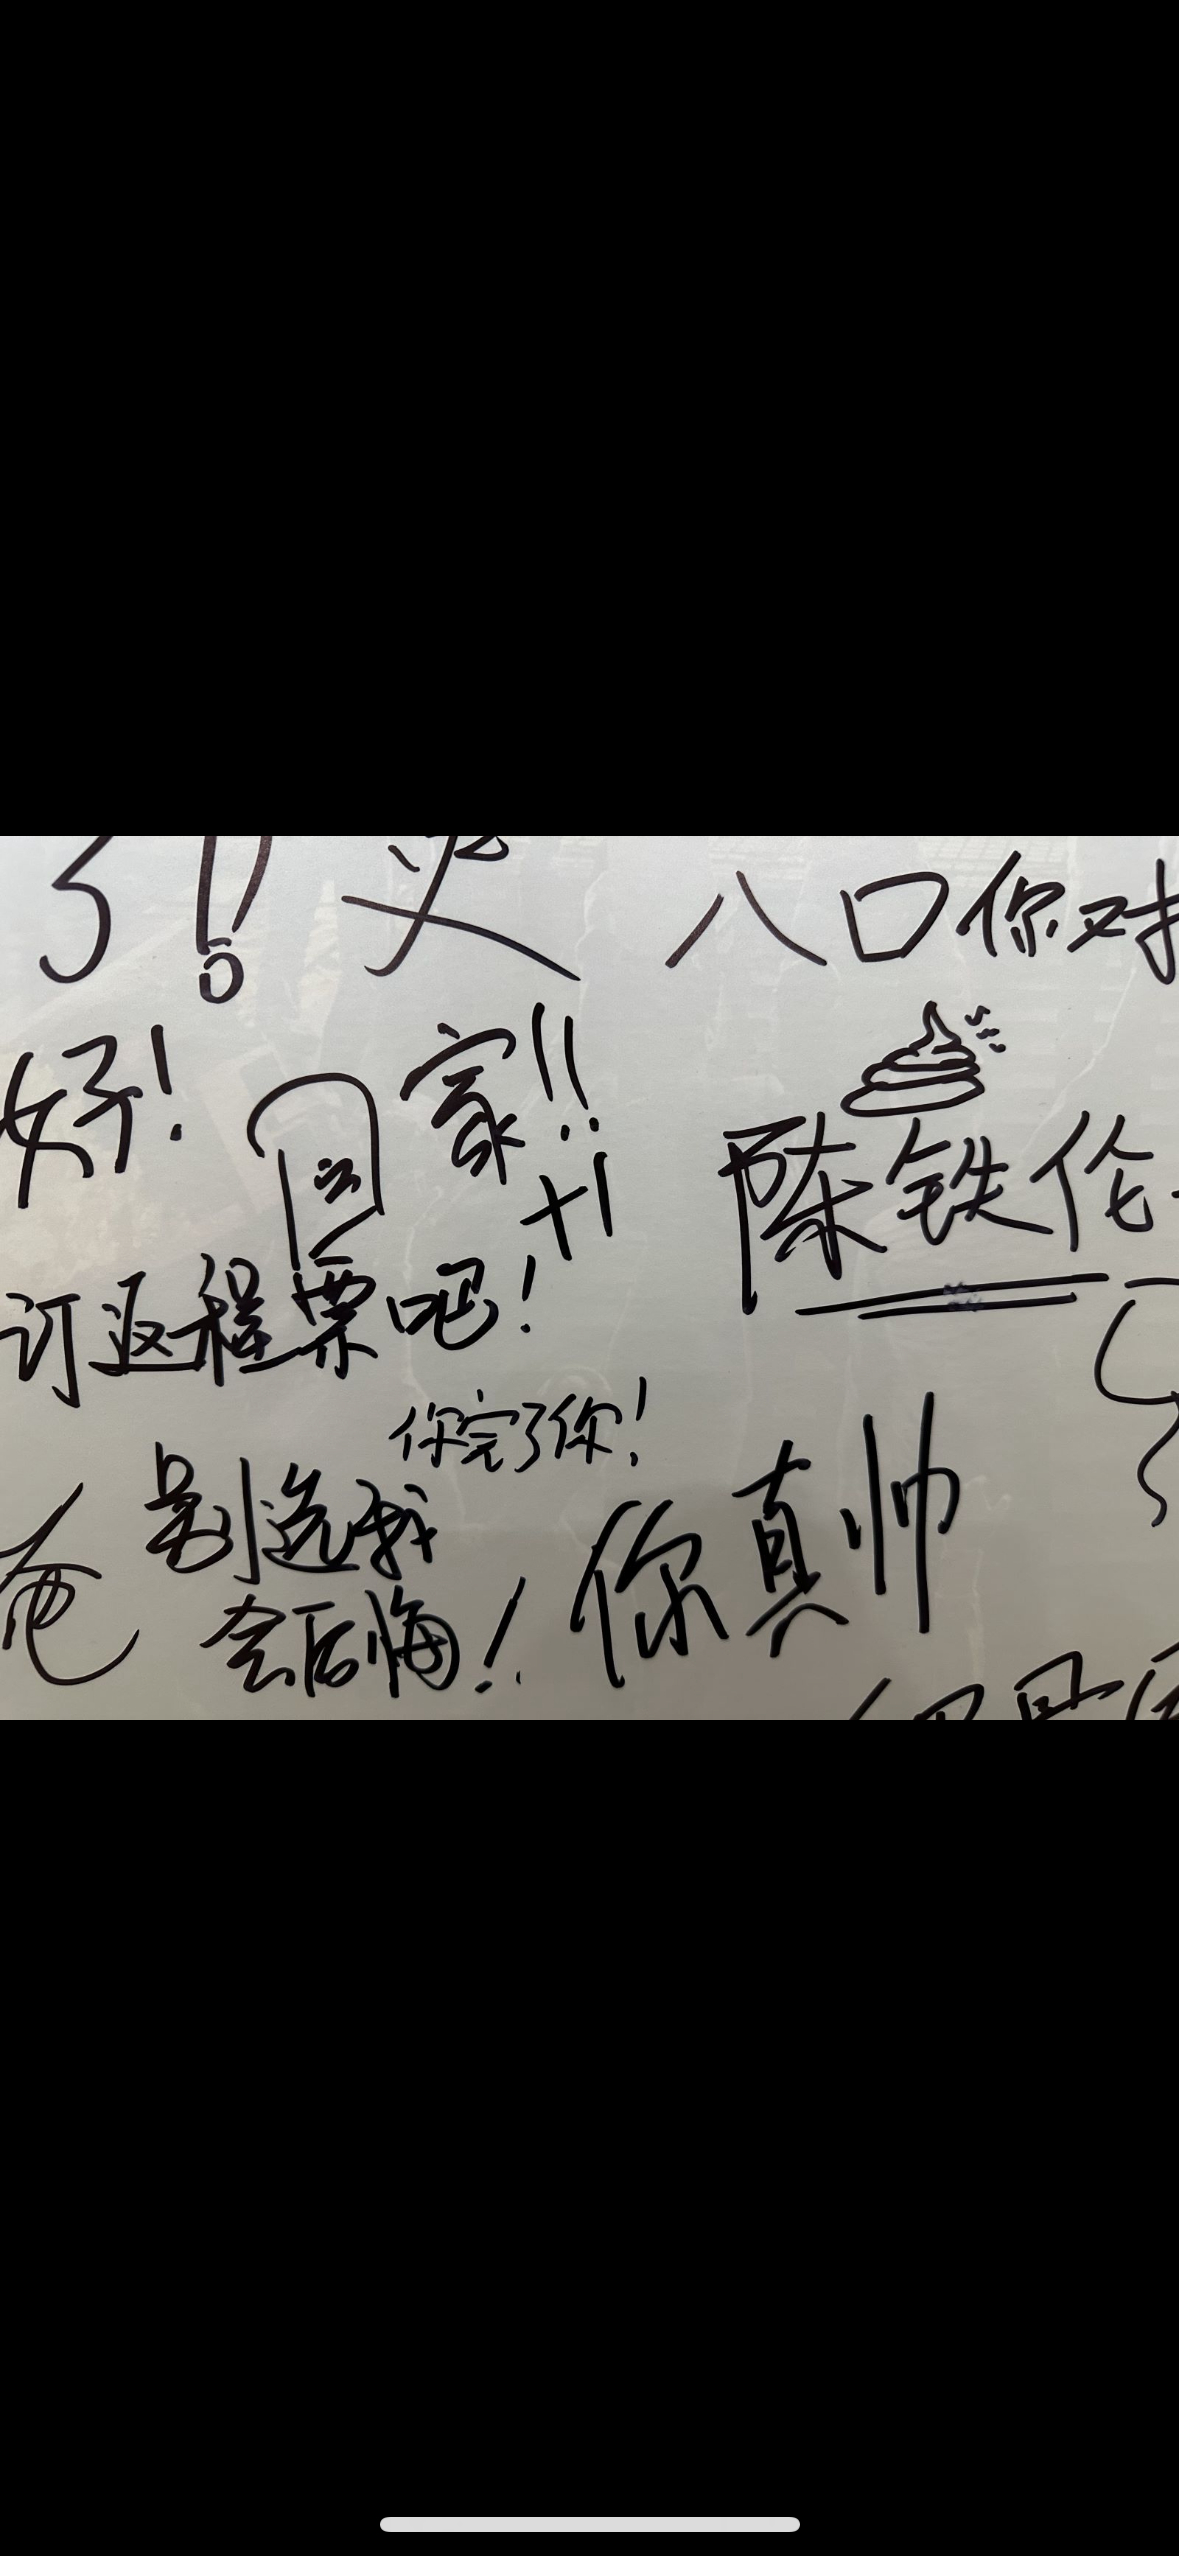 了!
八口你对
好!
回家!!
+1
陈铁伦
订返程票吧!
你完了你!
别选我
会后悔!
你真帅